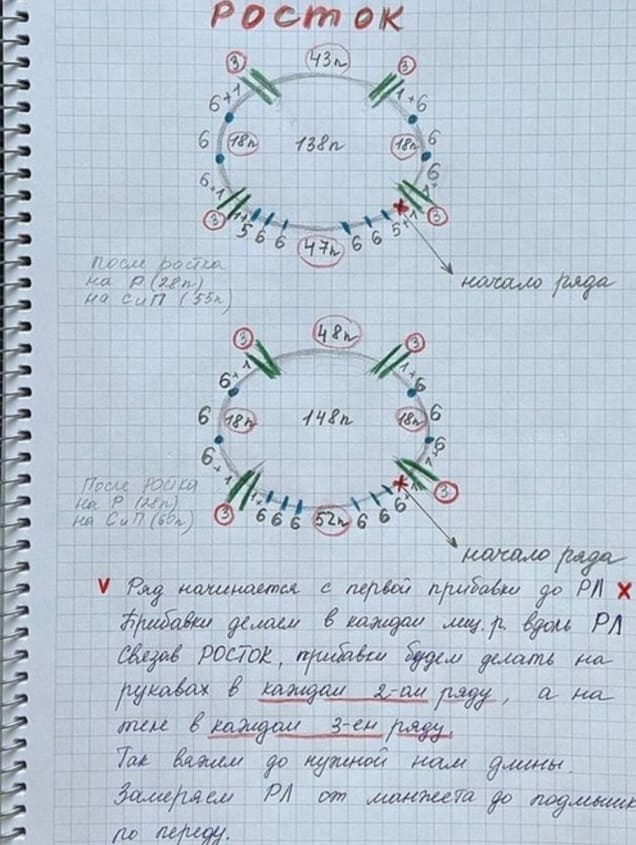 РОСТОК
3 43п 3
6+1 1+6
6 18п 138п 18п 6
6+1 6 1+
3 1+5 6 6 47п 6 6 5+1 3
После ростка
на Р (28п)
на СиП (55п)
начало ряда
3 48п 3
6+1 1+6
6 18п 148п 18п 6
6+1 6 1+
После
на Р (28п)
на СиП (60п)
3 1+ 6 6 6 52п 6 6 6+1 3
начало ряда
V Ряд начинается с первой прибавки до РЛ X
Прибавки делаем в каждом лиц. р. вдоль РЛ
Связав РОСТОК, прибавки будем делать на
рукавах в каждом 2-ом ряду, а на
теле в каждом 3-ем ряду.
Так вяжем до нужной нам длины.
Замеряем РЛ от манжета до подмышк
по переду.